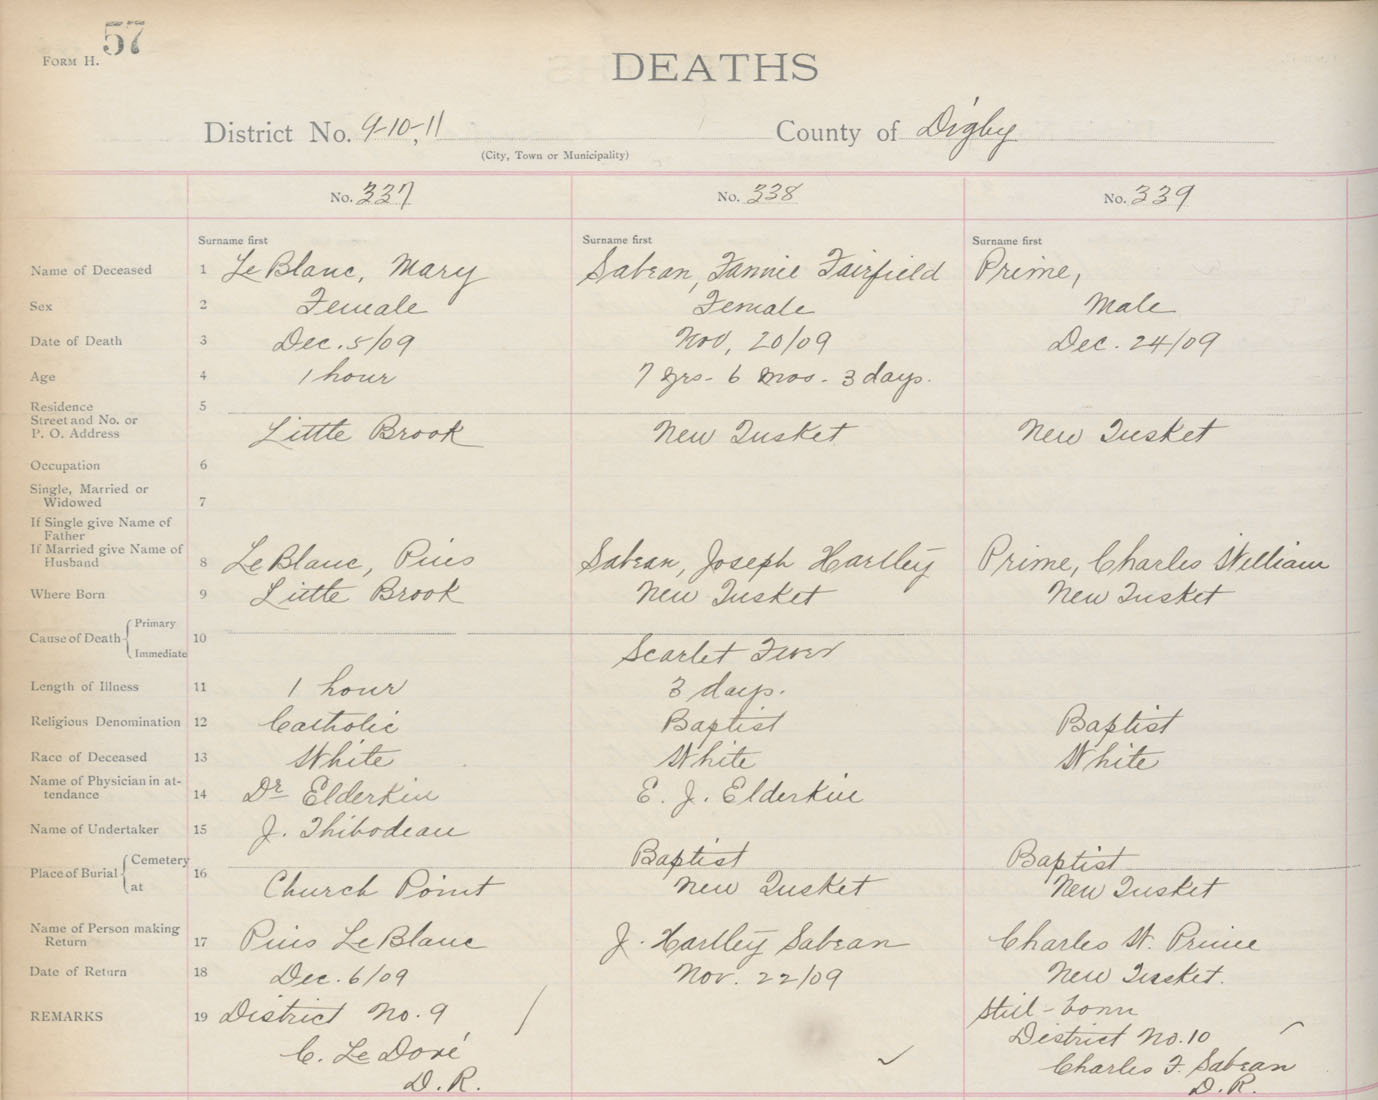 57
FORM H.
DEATHS
District No. 9-10, 11 County of Digby
(City, Town or Municipality)
No. 337 No. 338 No. 339
Surname first Surname first Surname first
Name of Deceased 1 LeBlanc, Mary Sabean, Fannie Fairfield Prime,
Sex 2 Female Female Male
Date of Death 3 Dec. 5/09 Nov, 20/09 Dec. 24/09
Age 4 1 hour 7 yrs- 6 mos- 3 days.
Residence 5
Street and No. or
P. O. Address Little Brook New Tusket New Tusket
Occupation 6
Single, Married or
Widowed 7
If Single give Name of
Father
If Married give Name of
Husband 8 LeBlanc, Pius Sabean, Joseph Hartley Prime, Charles William
Where Born 9 Little Brook New Tusket New Tusket
Cause of Death { Primary 10
Immediate Scarlet Fever
Length of Illness 11 1 hour 3 days.
Religious Denomination 12 Catholic Baptist Baptist
Race of Deceased 13 White White White
Name of Physician in at-
tendance 14 Dr Elderkin E. J. Elderkin
Name of Undertaker 15 J. Thibodeau
Place of Burial { Cemetery 16 Baptist Baptist
at Church Point New Tusket New Tusket
Name of Person making
Return 17 Pius LeBlanc J. Hartley Sabean Charles W. Prime
Date of Return 18 Dec. 6/09 Nov. 22/09 New Tusket.
REMARKS 19 District No. 9, Still-born
District No. 10
C. LeDoré Charles F. Sabean
D. R. D. R.